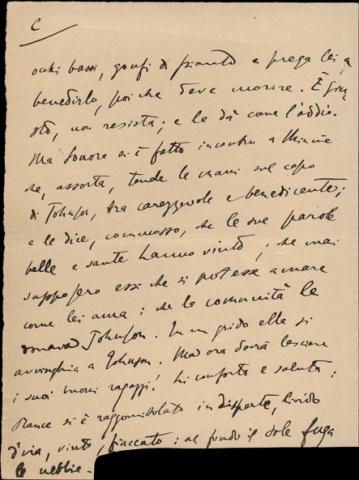 C
occhi bassi, gonfi di pianto e prega lei, a
benedirlo, poi che deve morire. È giu
sto, non resista; e le dà come l'addio.
Ma Sonora si è fatto incontro a Minnie
che, assorta, tende le mani sul capo
di Johnson, tra carezzevole e benedicente;
e le dice, commosso, che le sue parole
belle e sante hanno vinto, che mai
supposero essi che si potesse amare
come lei ama: che la comunità le
donava Johnson. In un grido ella si
avvinghia a Johnson. Ma ora dovrà lasciare
i suoi buoni ragazzi! Li conforta e saluta:
Rance si è raggomitolato in disparte, livido
d'ira, vinto, fiaccato: al fondo il sole fuga
le nebbie.